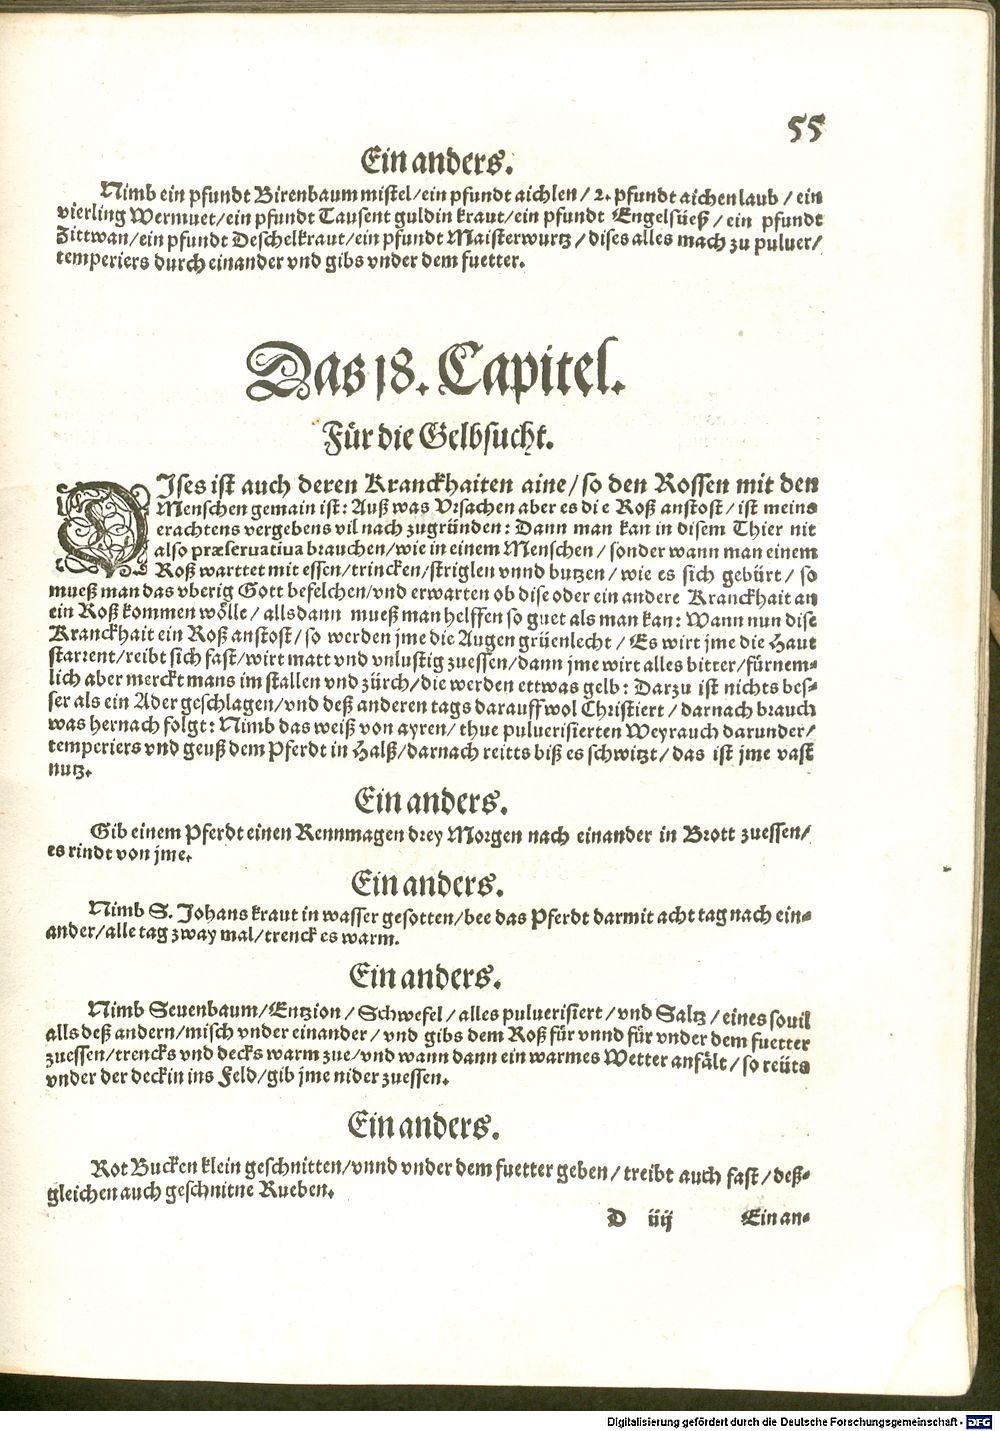 55
Ein anders.
Nimb ein pfundt Birenbaum mistel/ein pfundt aichlen/2. pfundt aichen laub/ein
vierling Wermuet/ein pfundt Tausent guldin kraut/ein pfundt Engelsüeß/ein pfundt
Zittwan/ein pfundt Deschelkraut/ein pfundt Maisterwurtz/dises alles mach zu puluer/
temperiers durch einander vnd gibs vnder dem fuetter.
Das 18. Capitel.
Für die Gelbsucht.
DJses ist auch deren Kranckhaiten aine/so den Rossen mit den
Menschen gemain ist: Auß was Vrsachen aber es die Roß anstost/ist meins
erachtens vergebens vil nach zugründen: Dann man kan in disem Thier nit
also præseruatiua brauchen/wie in einem Menschen/sonder wann man einem
Roß warttet mit essen/trincken/striglen vnnd butzen/wie es sich gebürt/so
mueß man das vberig Gott befelchen/vnd erwarten ob dise oder ein andere Kranckhait an
ein Roß kommen wölle/allsdann mueß man helffen so guet als man kan: Wann nun dise
Kranckhait ein Roß anstost/so werden jme die Augen grüenlecht/Es wirt jme die Haut
starrent/reibt sich fast/wirt matt vnd vnlustig zuessen/dann jme wirt alles bitter/fürnem-
lich aber merckt mans im stallen vnd zürch/die werden ettwas gelb: Darzu ist nichts bes-
ser als ein Ader geschlagen/vnd deß anderen tags darauff wol Christiert/darnach brauch
was hernach folgt: Nimb das weiß von ayren/thue puluerisierten Weyrauch darunder/
temperiers vnd geuß dem Pferdt in Halß/darnach reitts biß es schwitzt/das ist jme vast
nutz.
Ein anders.
Gib einem Pferdt einen Rennmagen drey Morgen nach einander in Brott zuessen/
es rindt von jme.
Ein anders.
Nimb S. Johans kraut in wasser gesotten/bee das Pferdt darmit acht tag nach ein-
ander/alle tag zway mal/trenck es warm.
Ein anders.
Nimb Seuenbaum/Entzion/Schwefel/alles puluerisiert/vnd Saltz/eines souil
alls deß andern/misch vnder einander/vnd gibs dem Roß für vnnd für vnder dem fuetter
zuessen/trencks vnd decks warm zue/vnd wann dann ein warmes Wetter anfält/so reüts
vnder der deckin ins Feld/gib jme nider zuessen.
Ein anders.
Rot Bucken klein geschnitten/vnnd vnder dem fuetter geben/treibt auch fast/deß-
gleichen auch geschnitne Rueben.
D iiij Ein an-
Digitalisierung gefördert durch die Deutsche Forschungsgemeinschaft - DFG